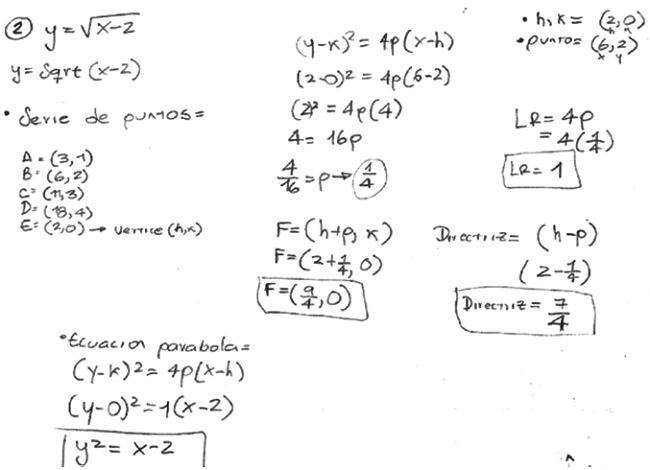 ② y = √x-2
y = Sqrt (x-2)
• Serie de puntos =
A = (3,1)
B = (6,2)
C = (11,3)
D = (18,4)
E = (2,0) → vertice (h,k)
(y-k)² = 4p(x-h)
(2-0)² = 4p(6-2)
(2)² = 4p(4)
4 = 16p
4/16 = p → 1/4
• h,k = (2,0)
h k
• punto = (6,2)
x y
LR = 4p
= 4(1/4)
LR = 1
F = (h+p, k)
F = (2+1/4, 0)
F = (9/4, 0)
Directriz = (h-p)
(2-1/4)
Directriz = 7/4
• Ecuacion parabola =
(y-k)² = 4p(x-h)
(y-0)² = 1(x-2)
y² = x-2